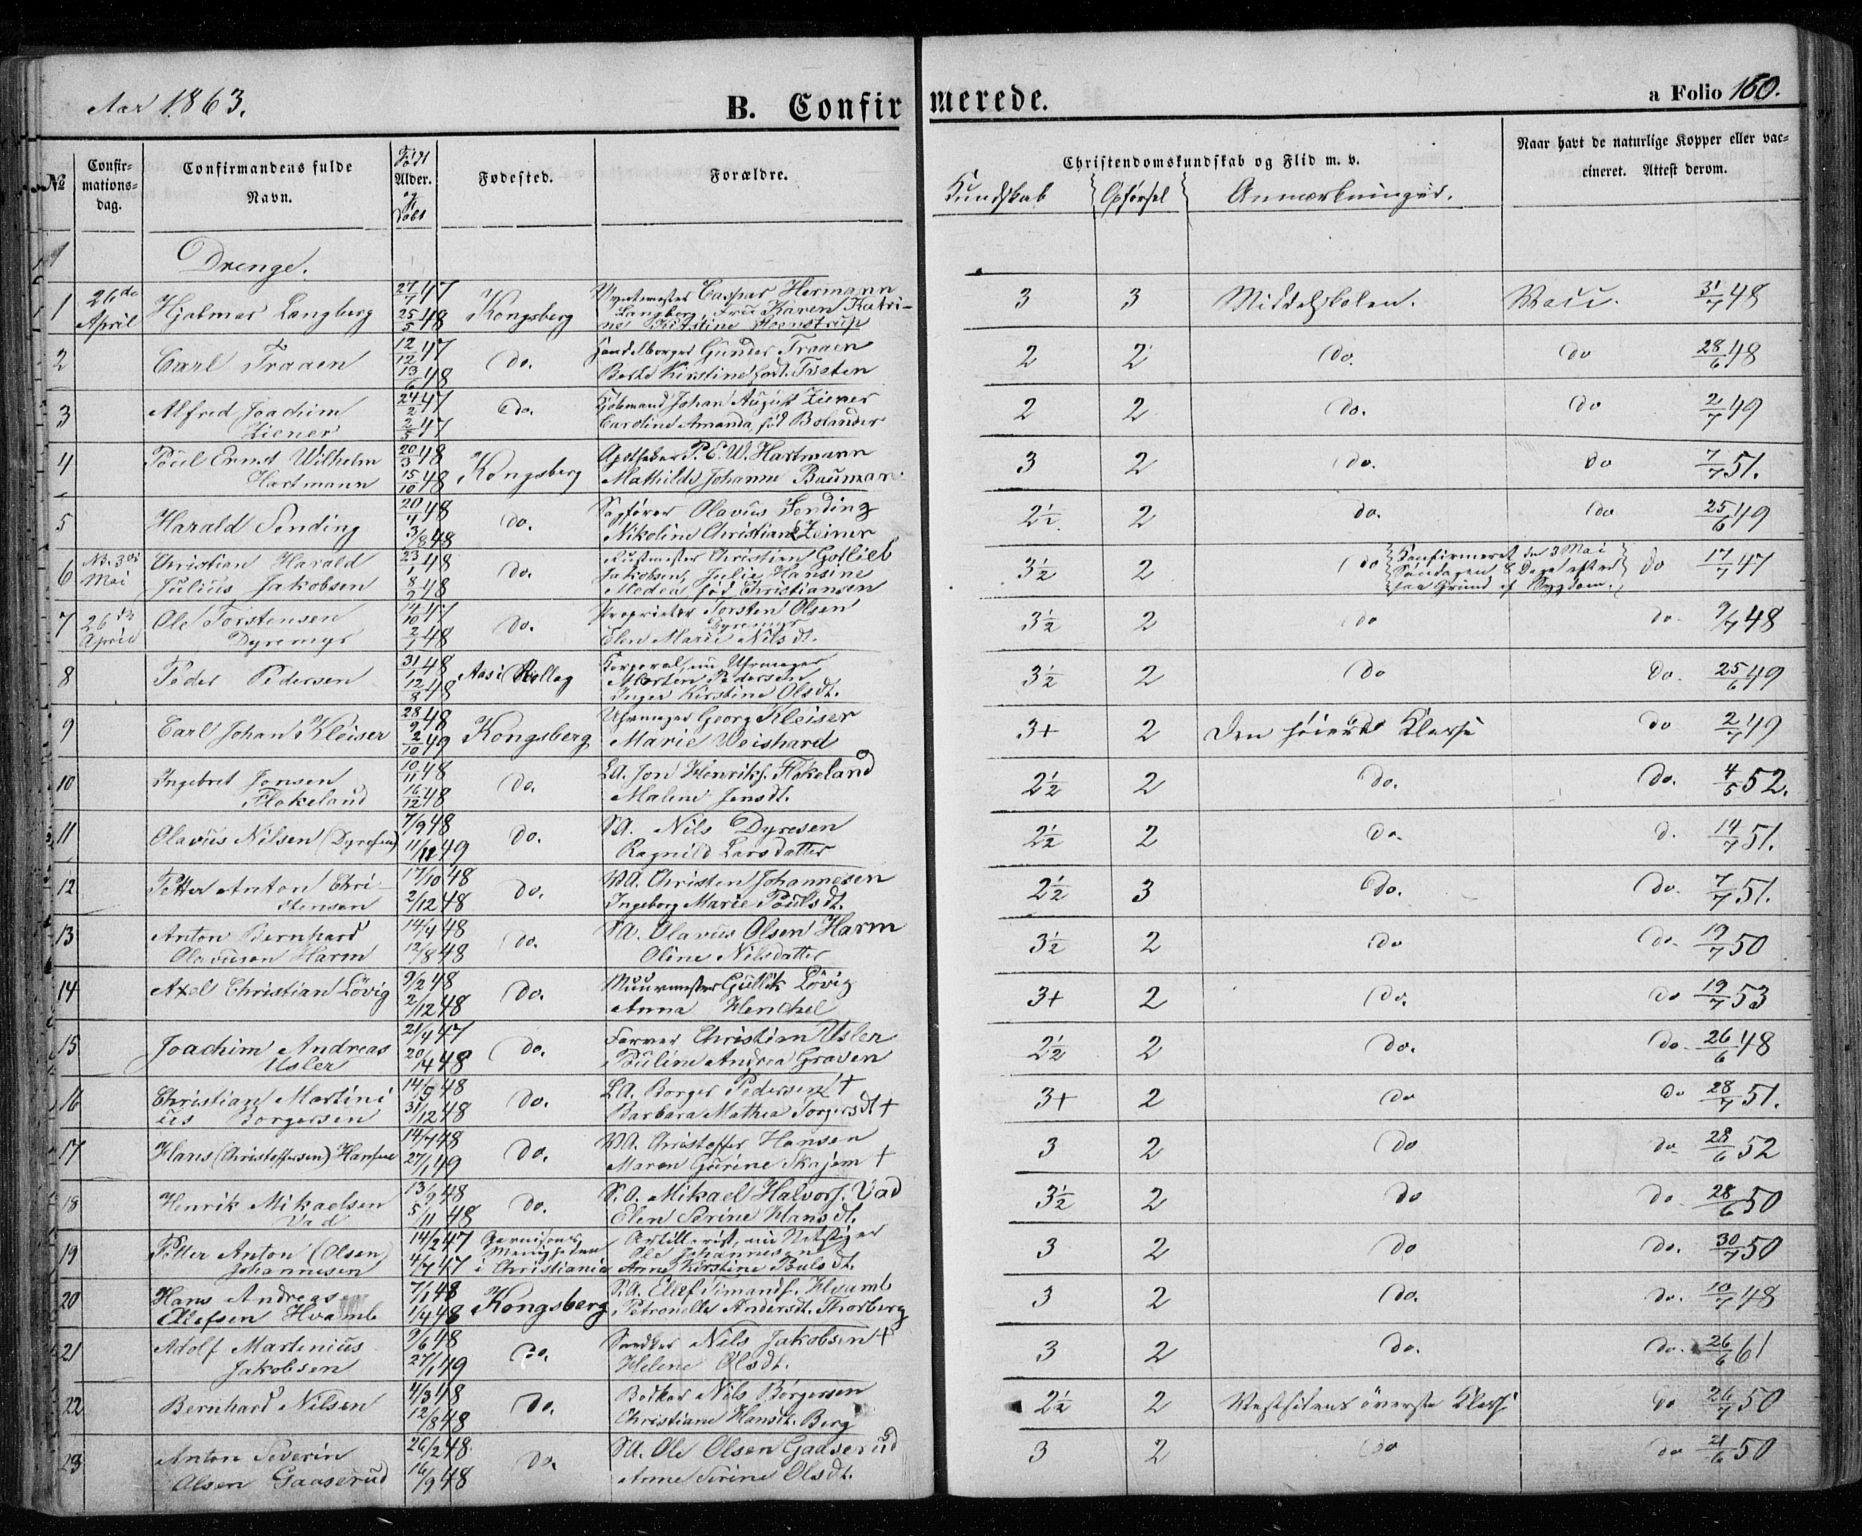 Aar 1863.
B. Confirmerede.
a Folio 160.
№ Confirmationsdag. Confirmandens fulde Navn. Født Alder. og Døbt Fødested. Forældre. Christendomskundskab og Flid m. v. Naar havt de naturlige Kopper eller vaccineret. Attest derom.
Kundskab Opførsel Anmærkninger.
Drenge.
1 26de April Hjalmar Langberg 27/7 47 25/5 48 Kongsberg Myntmester Caspar Hermann Langberg, Fru Karen Katrine Kirstine Steenstrup 3 3 Middelskolen. Vacc. 31/7 48
2 Carl Traaen 12/12 47 13/6 48 do. Handelborger Gunder Traaen Kirstine født Tristen 2 2 do. do 28/6 48
3 Alfred Joachim Ziener 24/2 47 2/5 47 do. Kjøbmand Johan August Ziener Caroline Amanda fød Bolander 2 2 do. do 2/7 49
4 Poul Ernst Wilhelm Hartmann 20/3 48 15/10 48 Kongsberg Apotheker P. E. W. Hartmann Mathilde Johanne Bauman 3 2 do. do 7/7 51.
5 Harald Sending 20/4 48 3/8 48 do. Sagfører Olavus Sending Nikoline Christiane Zeiner 2½ 2 do. do 25/6 49
6 Nb. 3die Mai Christian Harald Julius Jakobsen 23/1 48 8/2 48 do. Christian Gotlieb Jakobsen, Julie Hansine Medea fød Christiansen 3½ 2 do Konfirmeret den 3 Mai Søndagen 8 Dage efter paa Grund af Sygdom. do 17/7 47
7 26de April Ole Torstensen Dyremyr 14/10 47 2/7 48 do. Proprietær Torsten Olsen Dyremyr Elen Marie Nilsdt. 3½ 2 do do. 9/7 48
8 Peder Pedersen 31/1 48 12/8 48 Aas i Rollag Korporal, nu Uhrmager Morten Pedersen Inger Kirstine Olsdt. 3½ 2 do do. 25/6 49
9 Carl Johan Kleiser 28/9 48 2/10 49 Kongsberg Uhrmager Georg Kleiser Marie Weishard 3+ 2 Den høiere Klasse do 2/7 49
10 Ingebret Jonsen Flokeland 10/11 48 16/12 48 do. LA. Jon Henriks. Flokeland Malene Jensdt. 2½ 2 do. do. 4/5 52.
11 Olavus Nilsen (Dyresen) 7/9 48 11/12 49 do. SA. Nils Dyresen Ragnild Larsdatter 2½ 2 do. d. 14/7 51.
12 Petter Anton Christensen 17/10 48 2/12 48 do. BA. Christen Johannesen Ingeborg Marie Poulsdt. 2½ 3 do. do. 7/7 51.
13 Anton Bernhard Olavusen Harm 14/4 48 12/8 48 do. SA. Olavus Olsen Harm Oline Nilsdatter 3½ 2 do do. 19/7 50
14 Axel Christian Lövig 9/2 48 2/12 48 do. Muurmester Gullik Lövig Anna Henchel 3+ 2 do. do 19/7 53
15 Joachim Andreas Usler 21/4 47 20/14 48 do. Farver Christian Usler Pouline Andrea Graven 2½ 2 do. do. 26/6 48
16 Christian Martinius Borgersen 14/5 48 31/12 48 do. LA. Borger Pedersen † Barbara Mathea Torgersdt † 3+ 2 do do 28/7 51.
17 Hans (Christoffersen) Hansen 14/7 48 27/1 49 do. BA. Christoffer Hansen Maren Gurine Skajem † 3 2 do do. 28/6 52
18 Henrik Mikaelsen Vad 13/9 48 5/11 48 do. S.A. Mikael Halvors. Vad Elen Serine Hansdt. 3½ 2 do do. 28/6 50
19 Petter Anton (Olsen) Johannesen 14/2 47 4/7 47 Garnisons Menigheden i Christiania Artillerist, nu Ole Johannesen Anne Kirstine Pulsdt. 3 2 do do. 30/7 50
20 Hans Andreas Ellefsen Hvamb 7/1 48 1/4 48 Kongsberg S.A. Ellef Simands. Hvamb Petronelle Andersdt. Thorberg 3 2 do. do. 10/7 48
21 Adolf Martinius Jakobsen 9/6 48 27/1 49 do. Snedker Nils Jakobsen † Helene Olsdt. 3 2 do. do. 26/6 61
22 Bernhard Nilsen 4/3 48 12/8 48 do. Bødker Nils Börgersen Christiane Hansdt. Berg 2½ 2 Vestsidens överste Klasse do 26/7 50
23 Anton Severin Olsen Gaaserud 26/2 48. 16/9 48 do. SA. Ole Olsen Gaaserud Anne Serine Olsdt. 3 2 do do 21/6 50